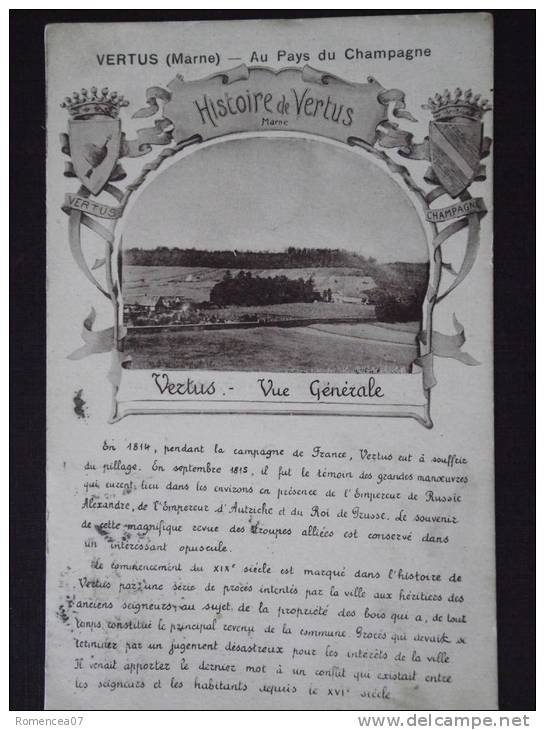 VERTUS (Marne) — Au Pays du Champagne
Histoire de Vertus
Marne
VERTUS
CHAMPAGNE
Vertus.- Vue Générale
En 1814, pendant la campagne de France, Vertus eut à souffrir
du pillage. En septembre 1815, il fut le témoin des grandes manœuvres
qui eurent lieu dans les environs en présence de l'Empereur de Russie
Alexandre, de l'Empereur d'Autriche et du Roi de Prusse. Le souvenir
de cette magnifique revue des troupes alliées est conservé dans
un intéressant opuscule.
Le commencement du XIXe siècle est marqué dans l'histoire de
Vertus par une série de procès intentés par la ville aux héritiers des
anciens seigneurs, au sujet de la propriété des bois qui a, de tout
temps constitué le principal revenu de la commune. Procès qui devait se
terminer par un jugement désastreux pour les intérêts de la ville
Il venait apporter le dernier mot à un conflit qui existait entre
les seigneurs et les habitants depuis le XVIe siècle.
Romencea07
http://www.delcampe.net